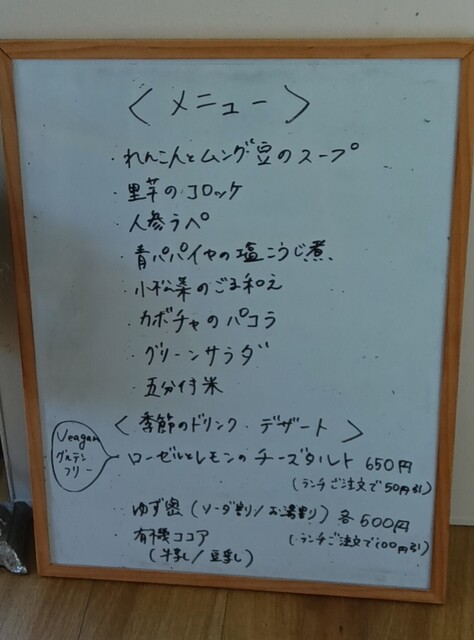 〈 メニュー 〉
・れんこんとムング豆のスープ
・里芋のコロッケ
・人参ラペ
・青パパイヤの塩こうじ煮
・小松菜のごま和え
・カボチャのパコラ
・グリーンサラダ
・五分付米
〈 季節のドリンク・デザート 〉
Veagan
グルテン
フリー
・ローゼルとレモンのチーズタルト 650円
(ランチご注文で50円引)
・ゆず蜜 (ソーダ割り/お湯割り) 各500円
・有機ココア (ランチご注文で100円引)
(牛乳/豆乳)